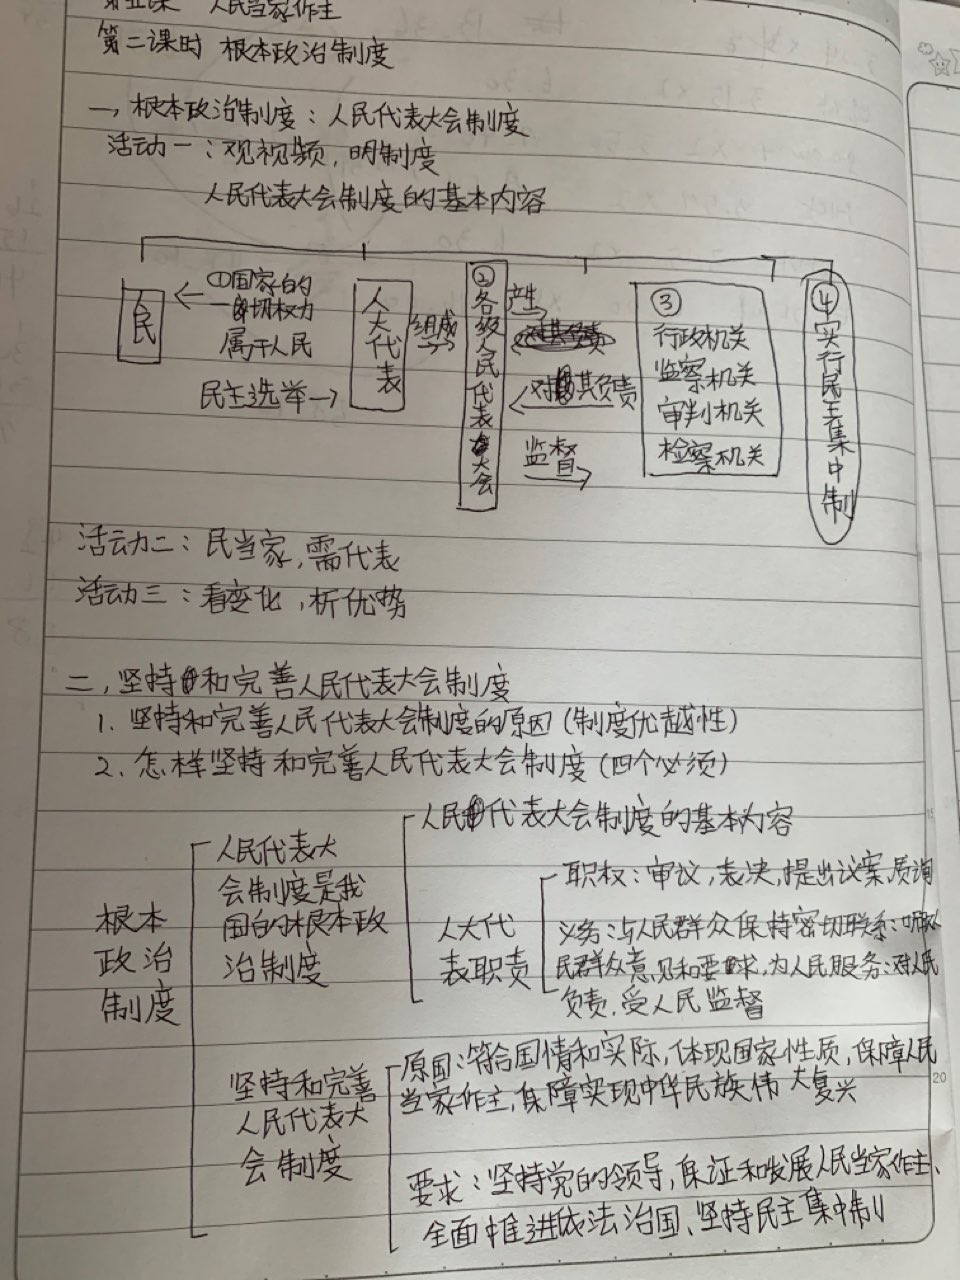 人民当家作主
第二课时 根本政治制度
一,根本政治制度：人民代表大会制度
活动一：观视频，明制度
人民代表大会制度的基本内容
人民
①国家的
一切权力
属于人民
民主选举
人大代表
组成
②各级人民代表大会
产生
对其负责
监督
③
行政机关
监察机关
审判机关
检察机关
④实行民主集中制
活动二：民当家,需代表
活动三：看变化,析优势
二,坚持和完善人民代表大会制度
1.坚持和完善人民代表大会制度的原因(制度优越性)
2.怎样坚持和完善人民代表大会制度(四个必须)
根本
政治
制度
人民代表大
会制度是我
国的根本政
治制度
人民代表大会制度的基本内容
人大代
表职责
职权：审议,表决,提出议案,质询
义务：与人民群众保持密切联系：听取人
民群众意见和要求,为人民服务：对人民
负责,受人民监督
坚持和完善
人民代表大
会制度
原因：符合国情和实际,体现国家性质,保障人民
当家作主,保障实现中华民族伟大复兴
要求：坚持党的领导,保证和发展人民当家作主、
全面推进依法治国、坚持民主集中制
20